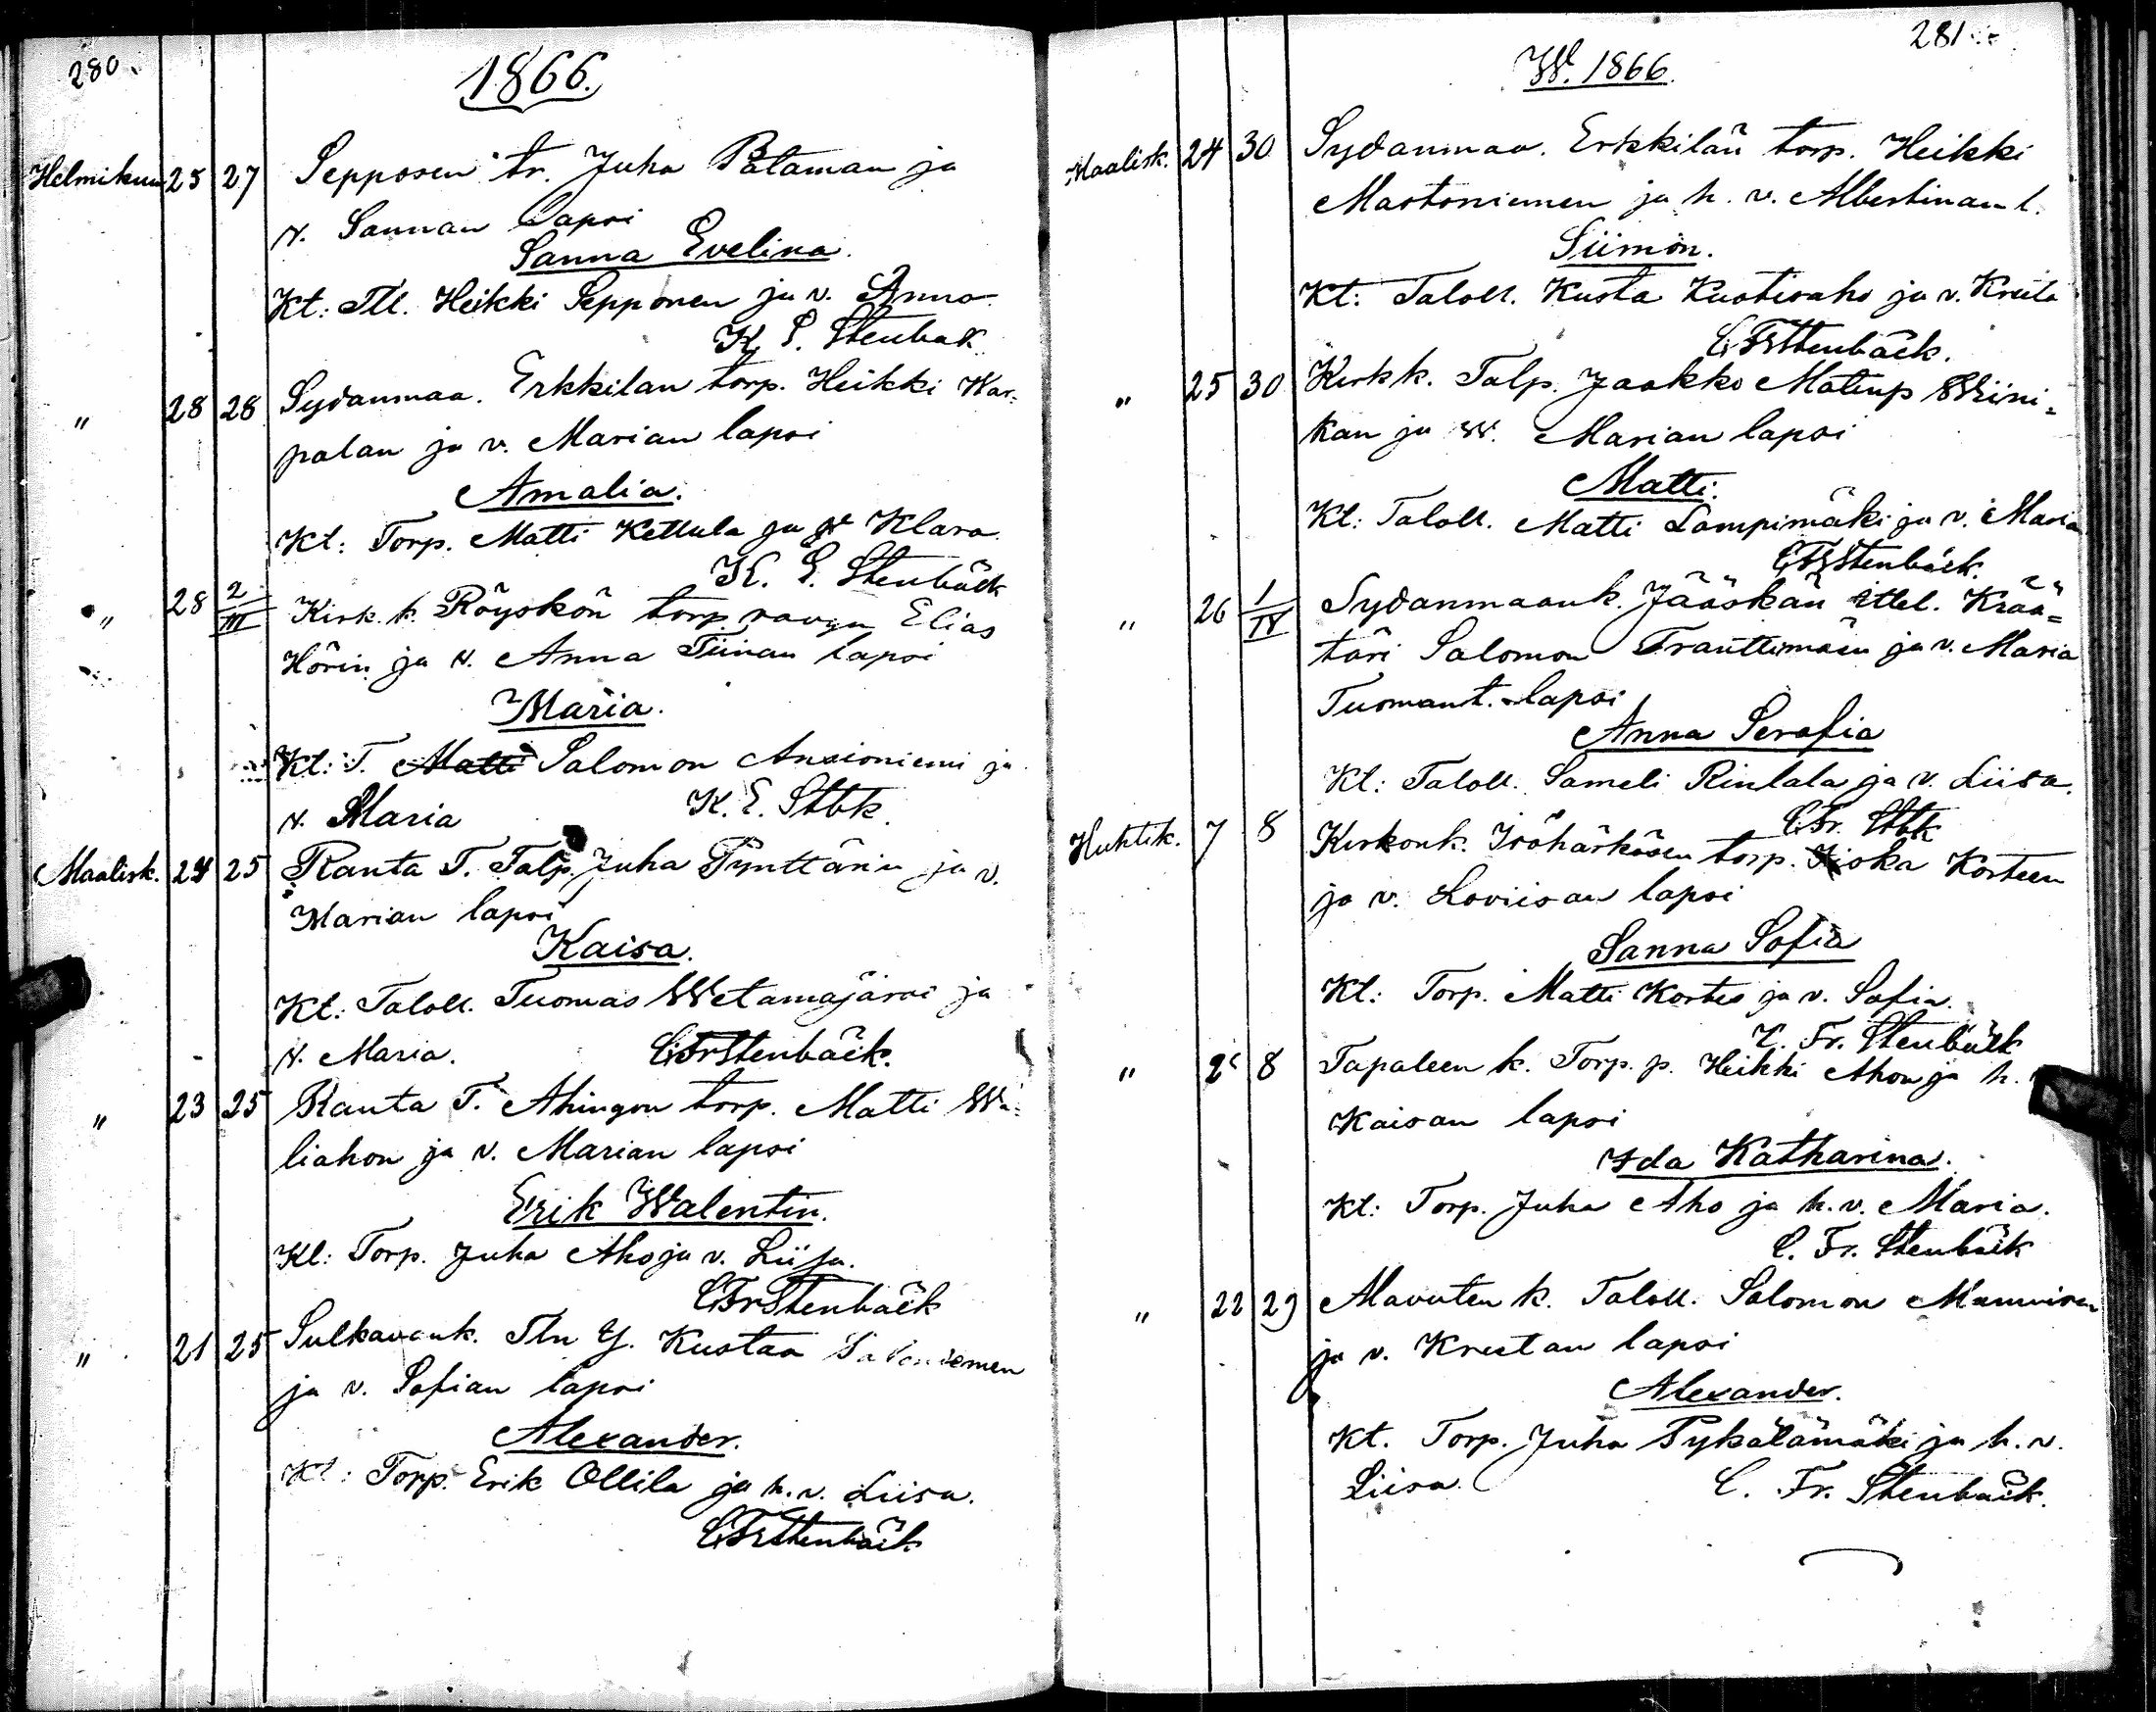 280.
1866.
Helmikuu 25 27 Sepposen tr. Juha Pataman ja
v. Sannan lapsi
Sanna Evelina.
Kt: Tll. Heikki Sepponen ja v. Anna.
K. E. Stenbäk
" 28 28 Sydanmaa. Erkkilan torp. Heikki Kar=
palan ja v. Marian lapsi
Amalia.
Kt: Torp. Matti Kettula ja v Klara
K. E. Stenbäck
" 28 2/III Kirk. k. Röyskön torp. Elias
Hörin ja v. Anna Tiinan lapsi
Maria.
Kt: T. Matti Salomon Ansioniemi ja
v. Maria K. E. Stbk.
Maalisk. 24 25 Ranta T. Talp. Juha Pynttärin ja v.
Marian lapsi
Kaisa.
Kt: Taloll. Tuomas Wetamajärvi ja
v. Maria. C Fr Stenbäck.
" 23 25 Ranta T. Ahingon torp. Matti Wä=
liahon ja v. Marian lapsi
Erik Walentin.
Kt: Torp. Juha Aho ja v. Liisa.
C Fr Stenbäck
" 21 25 Sulkavank. Tln Y. Kustaa
ja v. Sofian lapsi
Alexander.
Kt: Torp. Erik Ollila ja h. v. Liisa.
C Fr Stenbäck
281
W. 1866.
Maalisk. 24 30 Sydanmaa. Erkkilän torp. Heikki
Mastoniemen ja h. v. Albertinan l.
Siimon.
Kt: Taloll. Kusta Kuotisaho ja v. Kreeta
C Fr Stenbäck.
" 25 30 Kirkk. Talp. Jaakko Matinp Wiini=
kan ja W. Marian lapsi
Matti.
Kt: Taloll. Matti Lampimäki ja v. Maria
C Fr Stenbäck.
" 26 1/IV Sydanmaank. Jääskän ittel. Krää=
täri Salomon Tranttimäen ja v. Maria
Tuomant. lapsi
Anna Serafia
Kt: Taloll. Sameli Rintala ja v. Liisa.
C. Fr. Stbk
Huhtik. 7 8 Kirkonk. Isohärkösen torp. Kiska Korteen
ja v. Loviisan lapsi
Sanna Sofia
Kt: Torp. Matti Kortes ja v. Sofia.
C. Fr. Stenbäck
" 8 Tapaleen k. Torp. p. Heikki Ahon ja h.
Kaisan lapsi
Ida Katharina.
Kt: Torp. Juha Aho ja h. v. Maria.
C. Fr. Stenbäck
" 22 29 Alavuten k. Taloll. Salomon
ja v. Kreetan lapsi
Alexander.
Kt. Torp. Juha Pykälämäki ja h. v.
Liisa. C. Fr. Stenbäck.